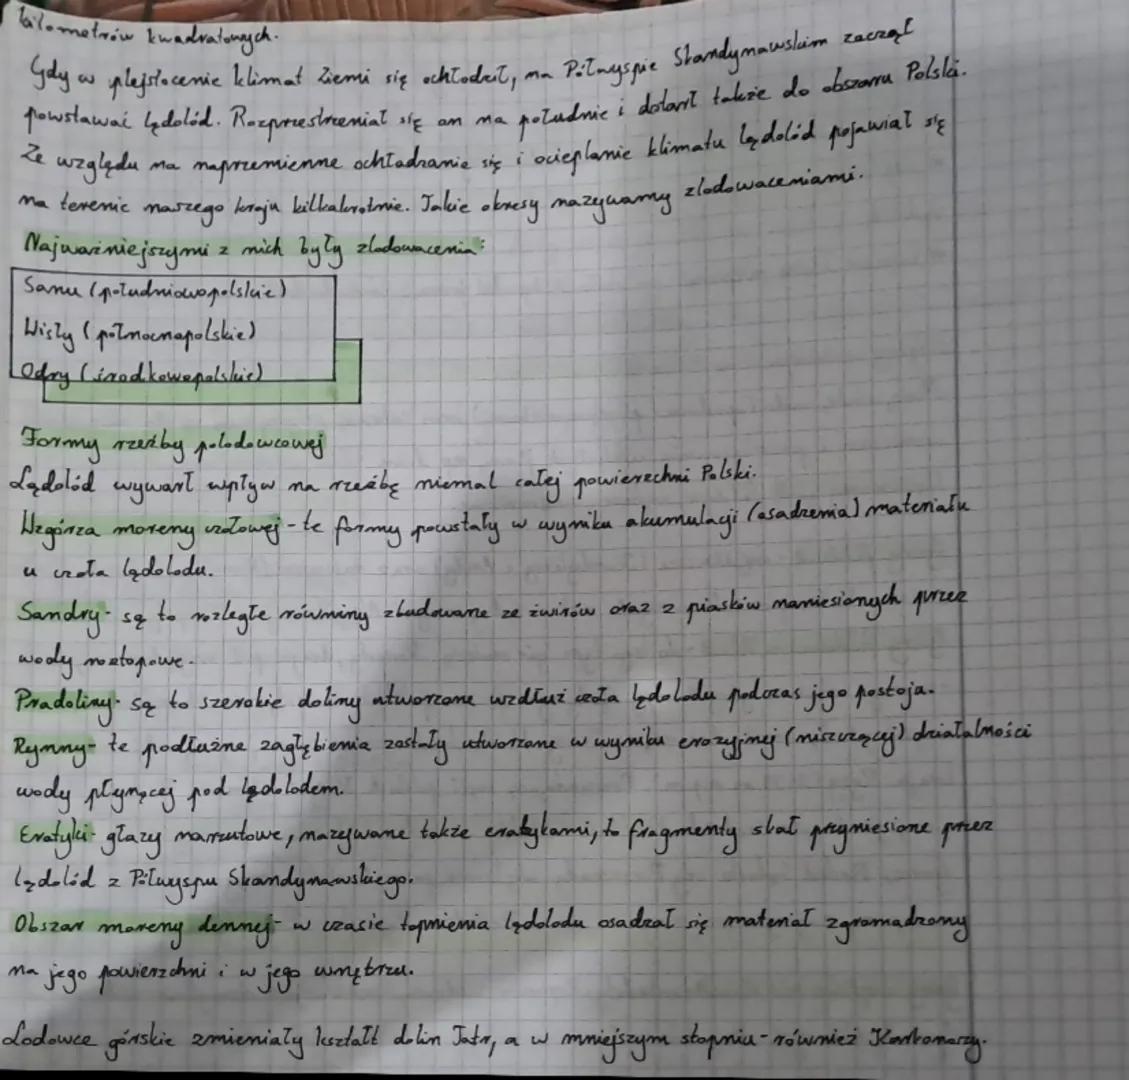 kilometrów kwadratowych.
Gdy w plejstocenie klimat Ziemi się ochłodził, na Półwyspie Skandynawskim zaczął
powstawać lądolód. Rozprzestrzeniał się on na południe i dotarł także do obszaru Polski.
Ze względu na naprzemienne ochładzanie się i ocieplanie klimatu lądolód pojawiał się
na terenie naszego kraju kilkakrotnie. Takie okresy nazywamy zlodowaceniami.
Najważniejszymi z nich były zlodowacenia:
Sanu (południowopolskie)
Wisły (północnopolskie)
Odry (środkowopolskie)
Formy rzeźby polodowcowej
Lądolód wywarł wpływ na rzeźbę niemal całej powierzchni Polski.
Wzgórza moreny czołowej - te formy powstały w wyniku akumulacji (osadzenia) materiału
u czoła lądolodu.
Sandry - są to rozległe równiny zbudowane ze żwirów oraz z piasków naniesionych przez
wody roztopowe.
Pradoliny - są to szerokie doliny utworzone wzdłuż czoła lądolodu podczas jego postoju.
Rynny - te podłużne zagłębienia zostały utworzone w wyniku erozyjnej (niszczącej) działalności
wody płynącej pod lądolodem.
Eratyki - głazy narzutowe, nazywane także eratykami, to fragmenty skał przyniesione przez
lądolód z Półwyspu Skandynawskiego.
Obszar moreny dennej - w czasie topnienia lądolodu osadzał się materiał zgromadzony
na jego powierzchni i w jego wnętrzu.
Lodowce górskie zmieniały kształt dolin Tatr, a w mniejszym stopniu - również Karkonoszy.